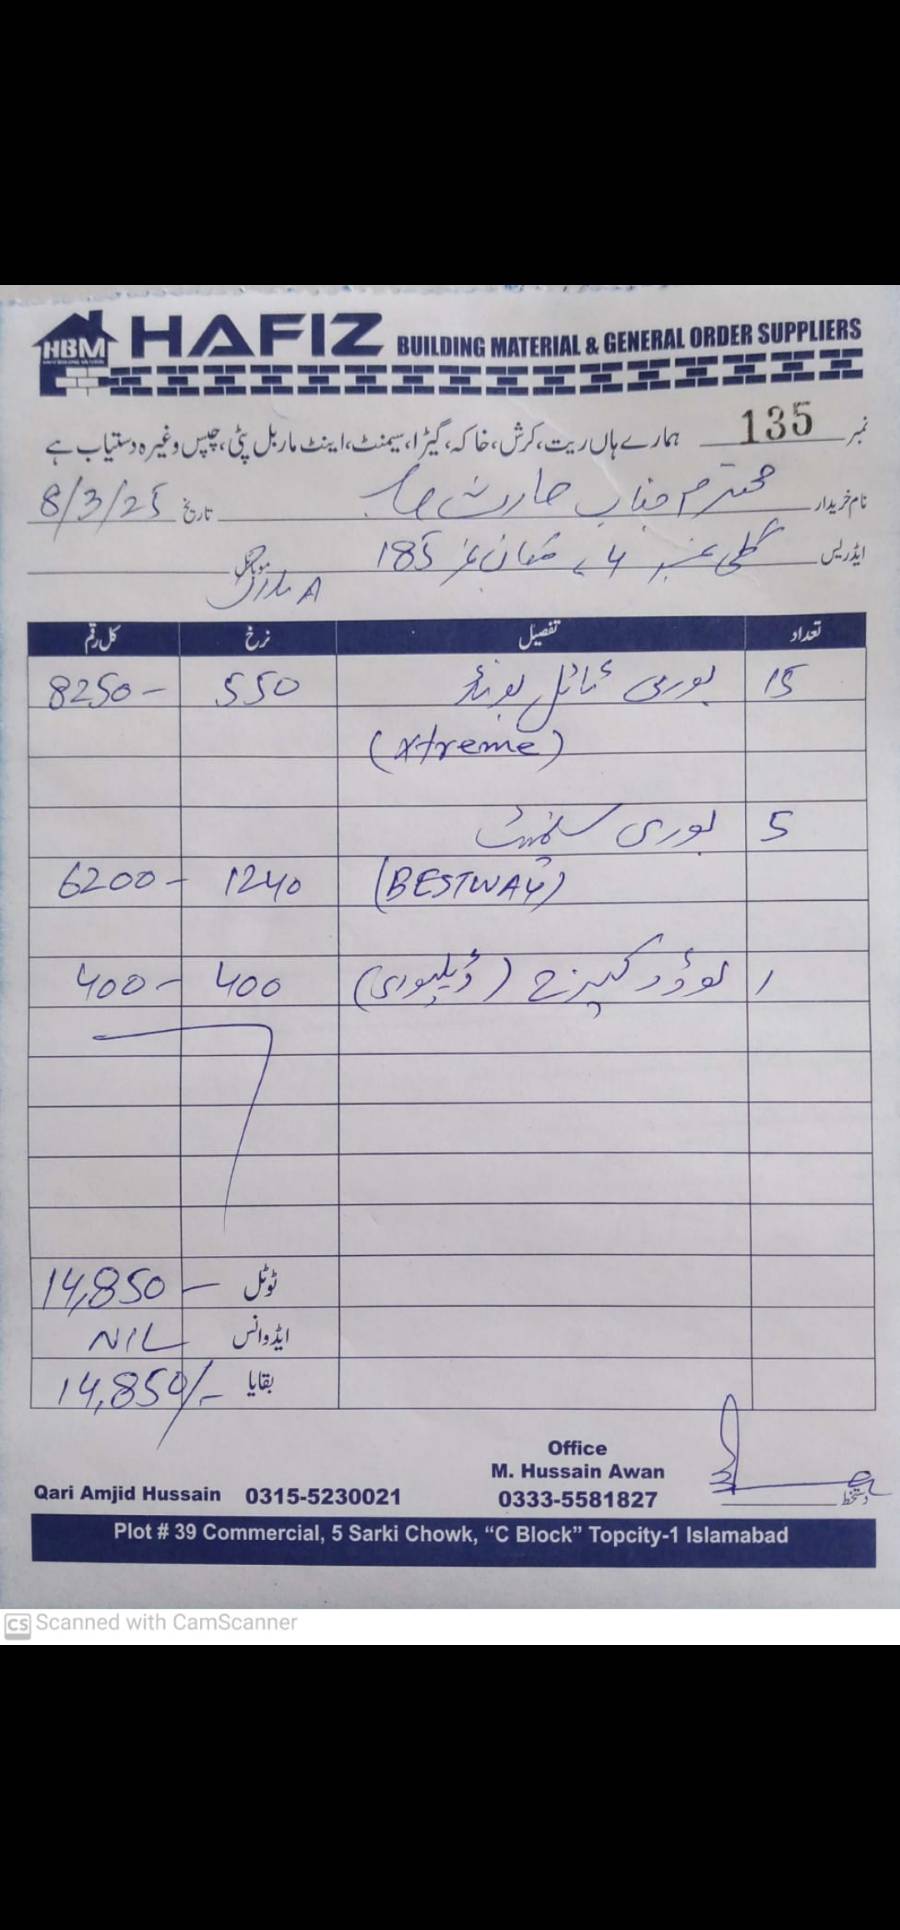 HBM HAFIZ BUILDING MATERIAL & GENERAL ORDER SUPPLIERS
نمبر 135 ہمارے ہاں ریت، کرش، خاکہ، گیڑا، سیمنٹ، اینٹ ماربل پٹی، چپس وغیرہ دستیاب ہے
نام خریدار محترم جناب حارث صاحب تاریخ 8/3/25
ایڈریس گلی نمبر 4، مکان نمبر 185 موبائل
A بلاک
تعداد تفصیل نرخ کل رقم
15 بوری ٹائل بونڈ 550 8250-
(xtreme)
5 بوری سیمنٹ
(BESTWAY) 1240 6200-
1 (ڈیلیوری) 400 400-
ٹوٹل 14,850-
ایڈوانس NIL
بقایا 14,850/-
Office
M. Hussain Awan
Qari Amjid Hussain 0315-5230021 0333-5581827 دستخط
Plot # 39 Commercial, 5 Sarki Chowk, “C Block” Topcity-1 Islamabad
CS Scanned with CamScanner